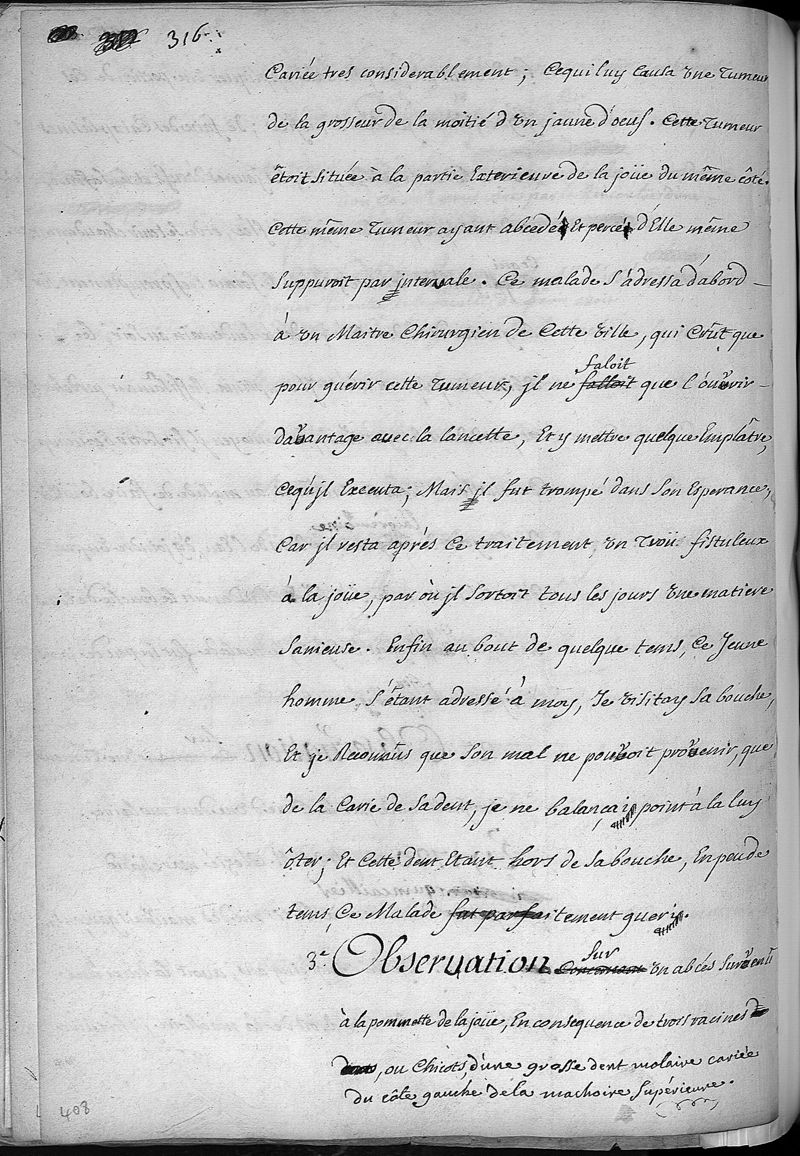 316.
Cariée tres considerablement ; Cequi luy Causa une Tumeur
de la grosseur de la moitié d'un jaune d'oeuf. Cette Tumeur
êtoit située à la partie Exterieure de la joüe du même côté.
Cette même Tumeur ayant abcedé, Et percé d'Elle même
Suppuroit par jntervale. Ce malade S'adressa d'abord
à un Maitre Chirurgien de Cette ville, qui Crût que
faloit
pour guérir cette Tumeur, jl ne falloit que l'ouvrir
davantage avec la lancette, Et y mettre quelque Emplâtre,
Cequ'jl Executa ; Mais jl fut trompé dans Son Esperance,
Car jl resta aprés Ce traitement, un Troü fistuleux
à la joüe, par où jl Sortoit tous les jours une matiere
Sanieuse. Enfin au bout de quelque tems, Ce Jeune
homme S'étant adressé à moy, Je visitay Sa bouche,
Et je Reconnûs que Son mal ne pouvoit provenir, que
de la Carie de Sa dent, je ne balançai point à la luy
ôter ; Et Cette dent Etant hors de Sa bouche, En peu de
tems, Ce Malade fut parfaitement gueri.
Sur
3.e Observation Concernant un abcés Survenu
à la pommette de la joüe, En consequence de trois racines
, ou Chicots, d'une grosse dent molaire cariée
du côté gauche de la machoire Supérieure.
408